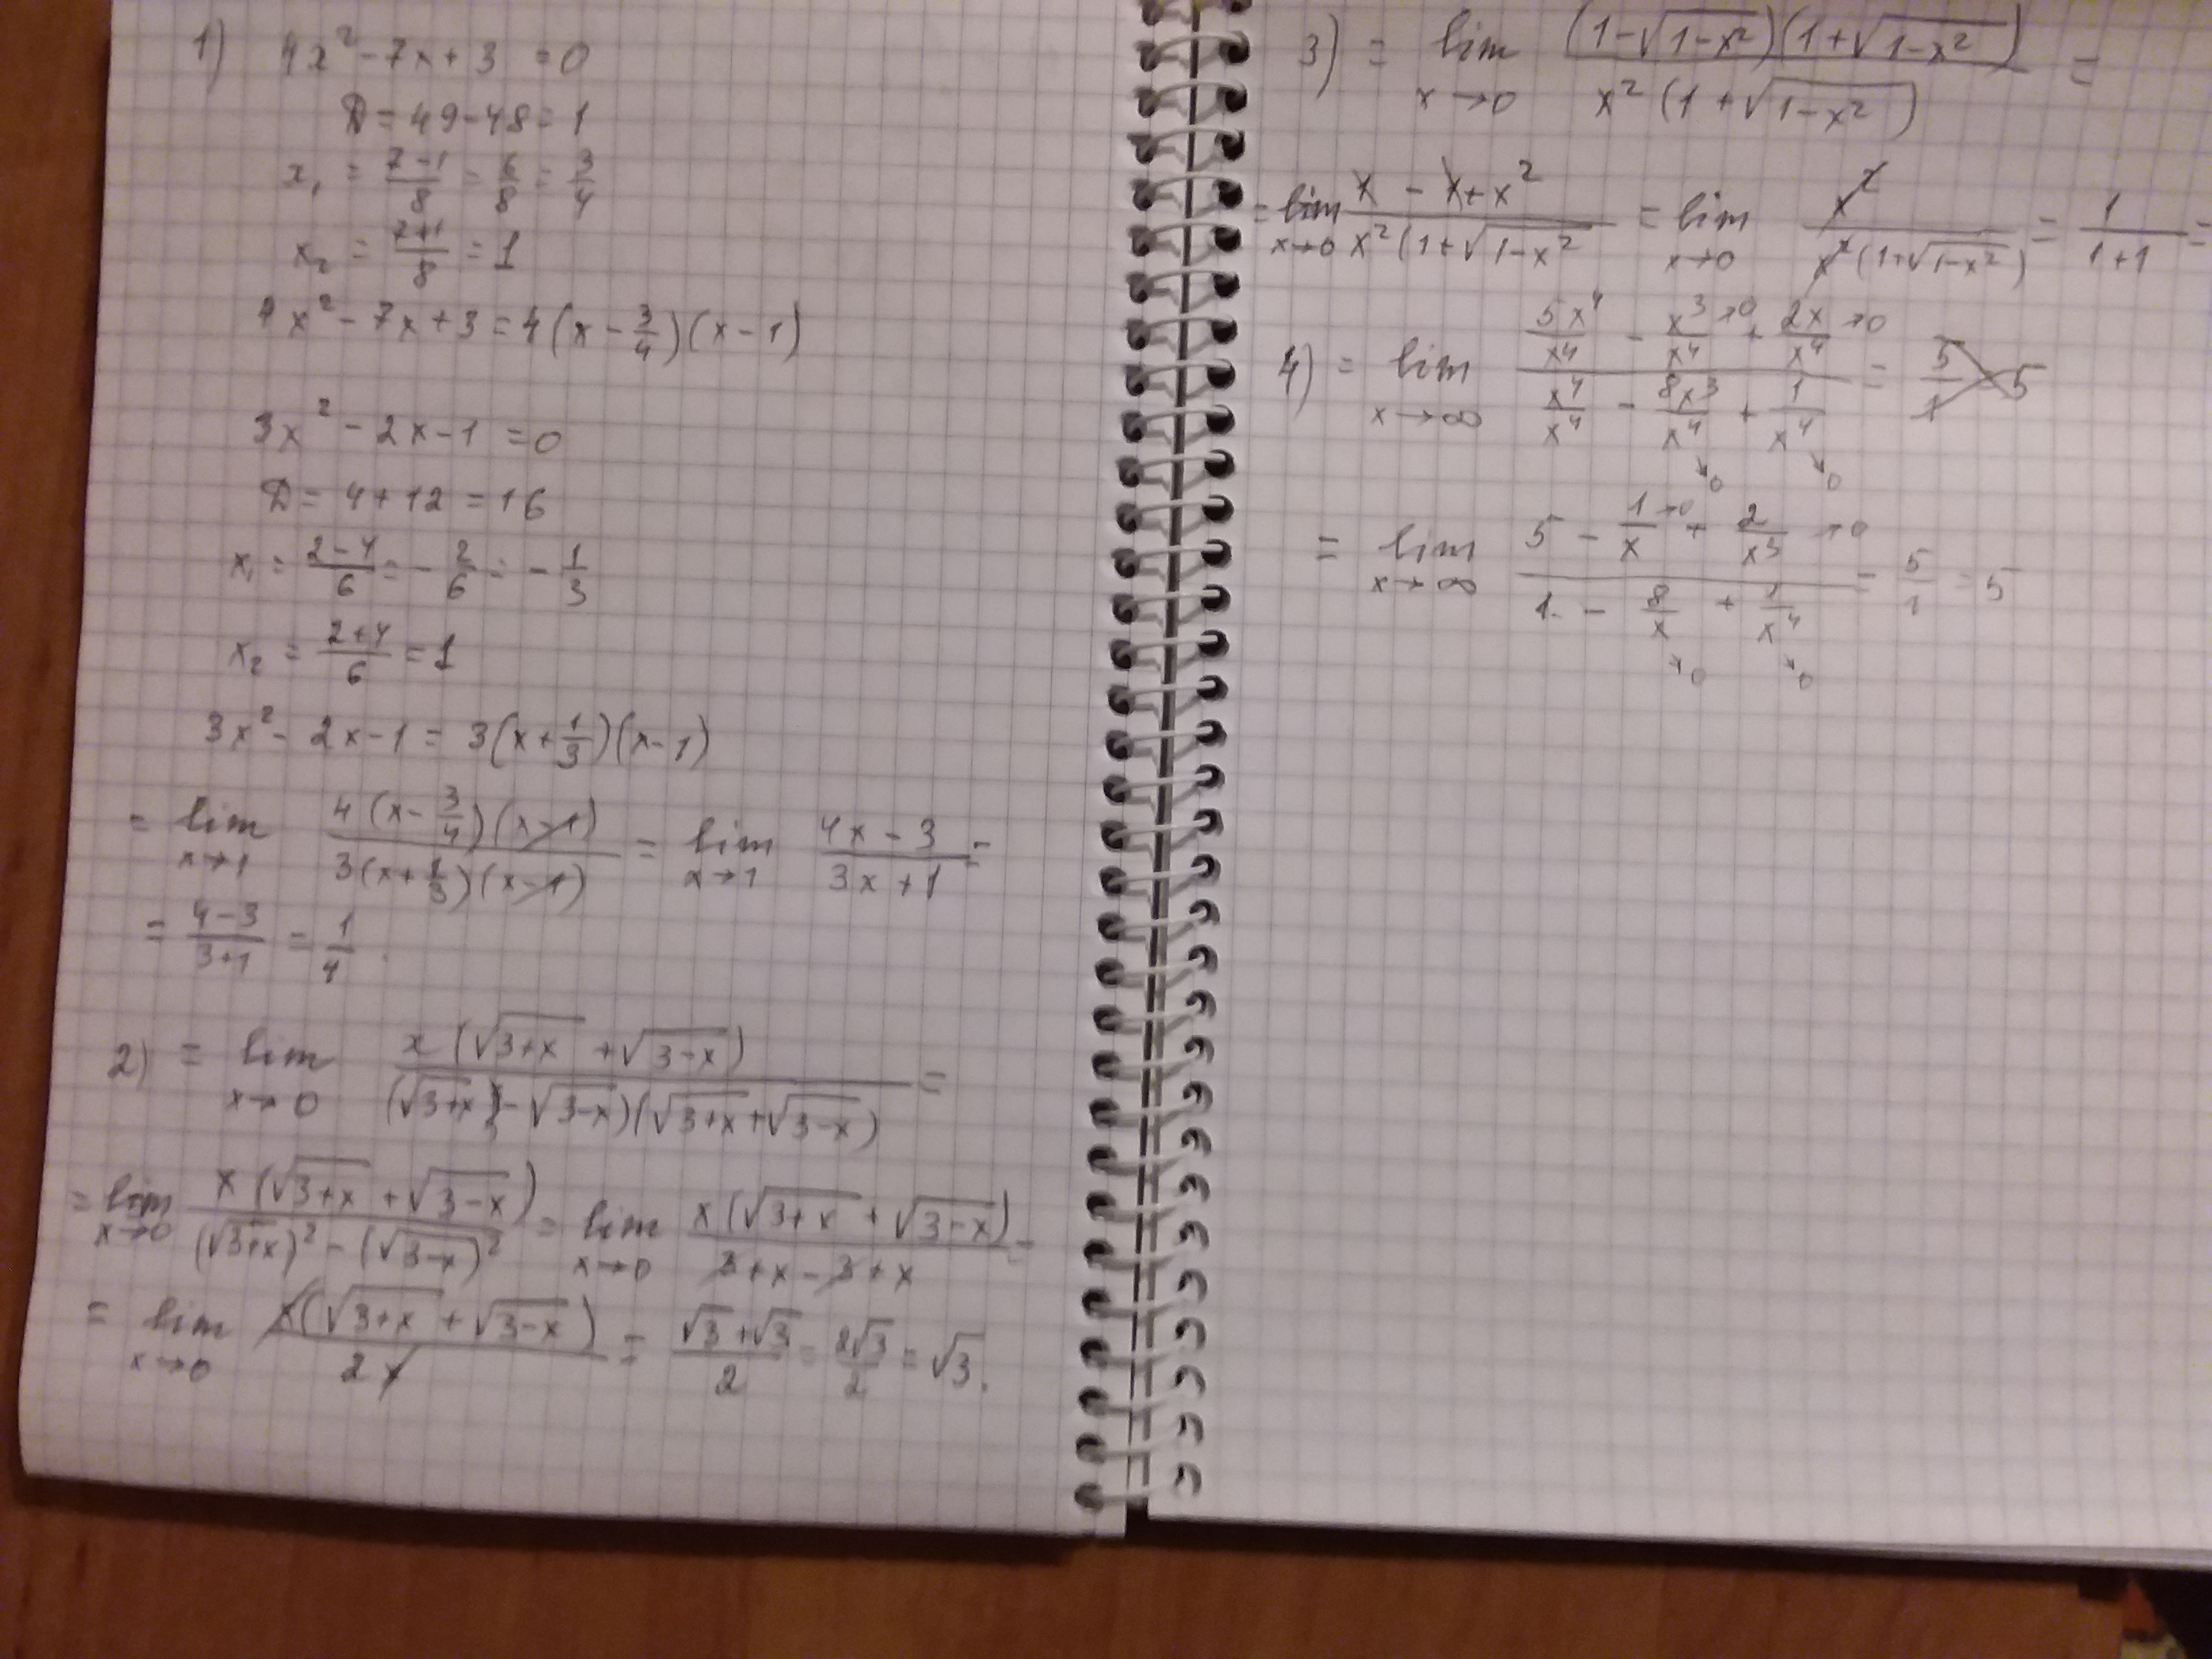 1) 4x² - 7x + 3 = 0
D = 49 - 48 = 1
x₁ = (7-1)/8 = 6/8 = 3/4
x₂ = (7+1)/8 = 1
4x² - 7x + 3 = 4(x - 3/4)(x - 1)
3x² - 2x - 1 = 0
D = 4 + 12 = 16
x₁ = (2-4)/6 = -2/6 = -1/3
x₂ = (2+4)/6 = 1
3x² - 2x - 1 = 3(x + 1/3)(x - 1)
= lim x→1 4(x - 3/4)(x-1) / 3(x + 1/3)(x-1) = lim x→1 (4x - 3)/(3x + 1) =
= (4-3)/(3+1) = 1/4.
2) = lim x→0 x(√(3+x) + √(3-x)) / (√(3+x) - √(3-x))(√(3+x) + √(3-x)) =
= lim x→0 x(√(3+x) + √(3-x)) / (√(3+x))² - (√(3-x))² = lim x→0 x(√(3+x) + √(3-x)) / 3+x-3+x =
= lim x→0 x(√(3+x) + √(3-x)) / 2x = (√3+√3)/2 = 2√3/2 = √3.
3) = lim x→0 (1-√(1-x²))(1+√(1-x²)) / x²(1+√(1-x²)) =
= lim x→0 1 - 1 + x² / x²(1+√(1-x²) = lim x→0 x² / x²(1+√(1-x²)) = 1/(1+1) =
4) = lim x→∞ (5x⁴/x⁴ - x³/x⁴→0 + 2x/x⁴→0) / (x⁴/x⁴ - 8x³/x⁴→0 + 1/x⁴→0) =
= lim x→∞ (5 - 1/x→0 + 2/x³→0) / (1 - 8/x→0 + 1/x⁴→0) = 5/1 = 5